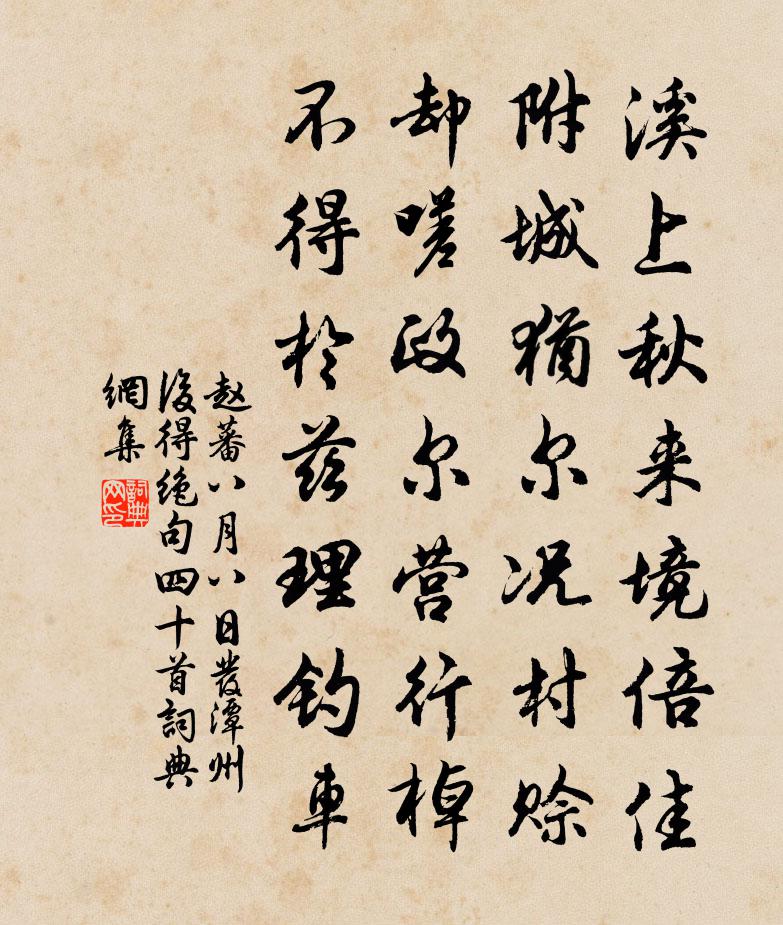 溪上秋来境倍佳
附城犹尔况村赊
却嗟政尔营行棹
不得於兹理钓車
赵蕃八月八日發潭州
後得绝句四十首詞典
網集
詞典
网印